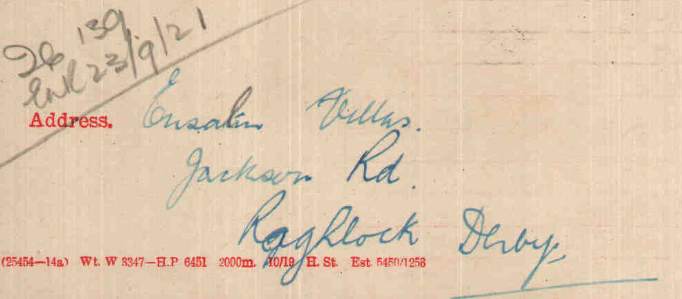 139
EWR 23/9/21
Address. Ensalin Villas.
Jackson Rd.
Raghlock Derby,
(25454—14a) Wt. W 3347—H.P 6451 2000m. 10/19 H. St. Est. 5450/1256